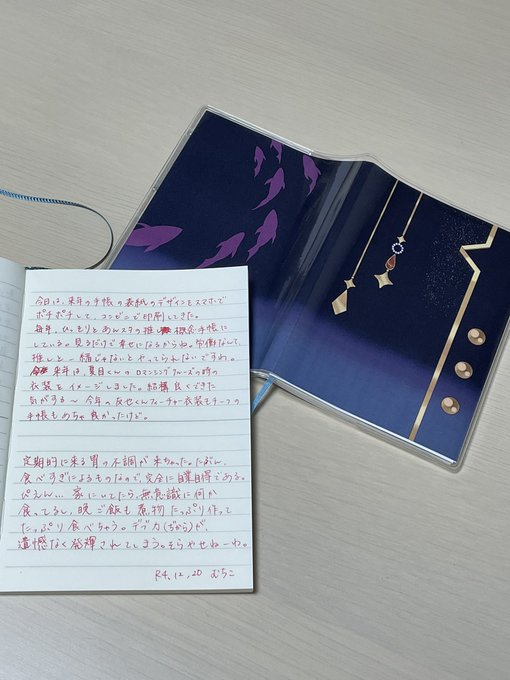 今日は、来年の手帳の表紙のデザインをスマホで
ポチポチして、コンビニで印刷してきた。
毎年、ひっそりとあんスタの推し概念手帳に
している。見るだけで幸せになるからね。労働なんて、
推しと一緒じゃないとやってられないですわ。
来年は、夏目くんのロマンシングクルーズの時の
衣装をイメージしました。結構良くできた
気がする〜 今年の友也くんフィーチャー衣装モチーフの
手帳もめちゃ良かったけど。
定期的に来る胃の不調が来ちゃった。たぶん、
食べすぎによるものなので、完全に自業自得である。
ぴえん… 家にいてたら、無意識に何か
食ってるし、晩ご飯も煮物たっぷり作って
たっぷり食べちゃう。デブ力(ぢから)が、
遺憾なく発揮されてしまう。そらやせねーわ。
R4.12.20 むちこ